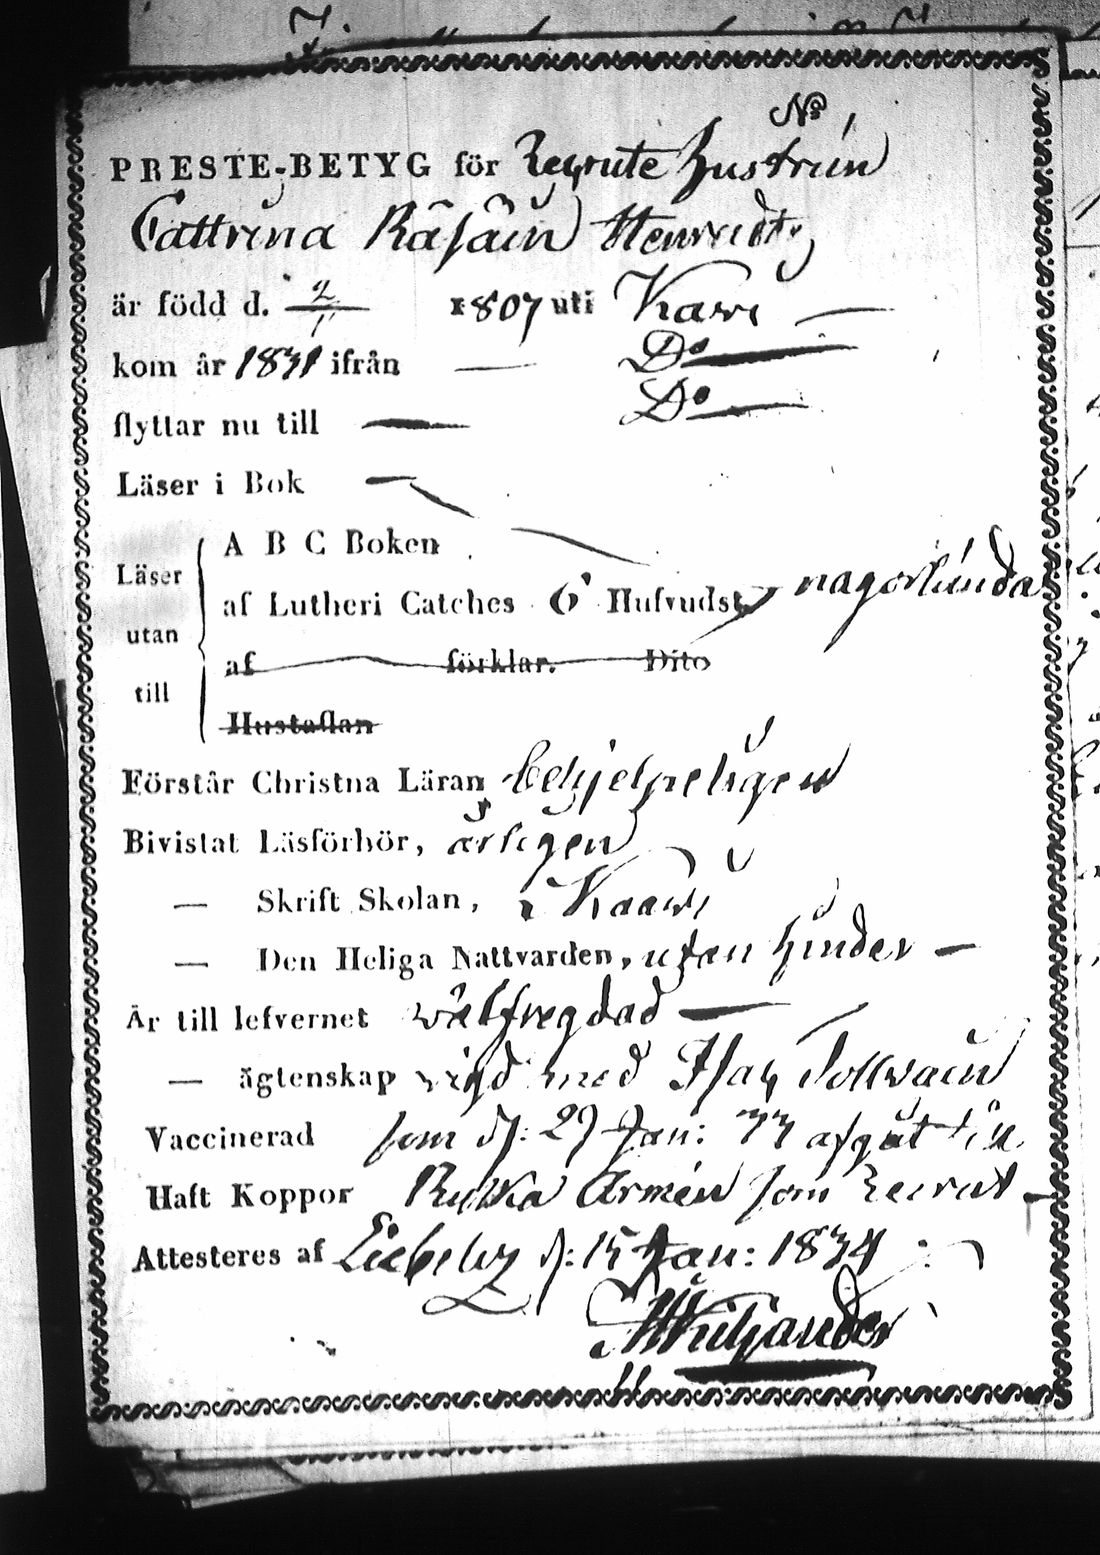 No 1
PRESTE-BETYG för Recrute Hustrun
Cattrina Räsäin Henricdtr
är född d. 2/1 1807 uti Kavi —
kom år 1831 ifrån — Do —
flyttar nu till — Do —
Läser i Bok —
Läser utan till
A B C Boken
af Lutheri Catches 6 Hufvudst. nagorlunda
af förklar. Dito
Hustaflan
Förstår Christna Läran behjelpeligen
Bivistat Läsförhör, årligen
— Skrift Skolan, i Kaavi
— Den Heliga Nattvarden, utan hinder —
Är till lefvernet wälfregdad —
— ägtenskap vigd med Isac Tollvain
Vaccinerad som d: 29 Jan: 33 afgåt till
Haft Koppor Ryska Armén som Recrut —
Attesteres af Libelitz d: 15 Jan: 1834